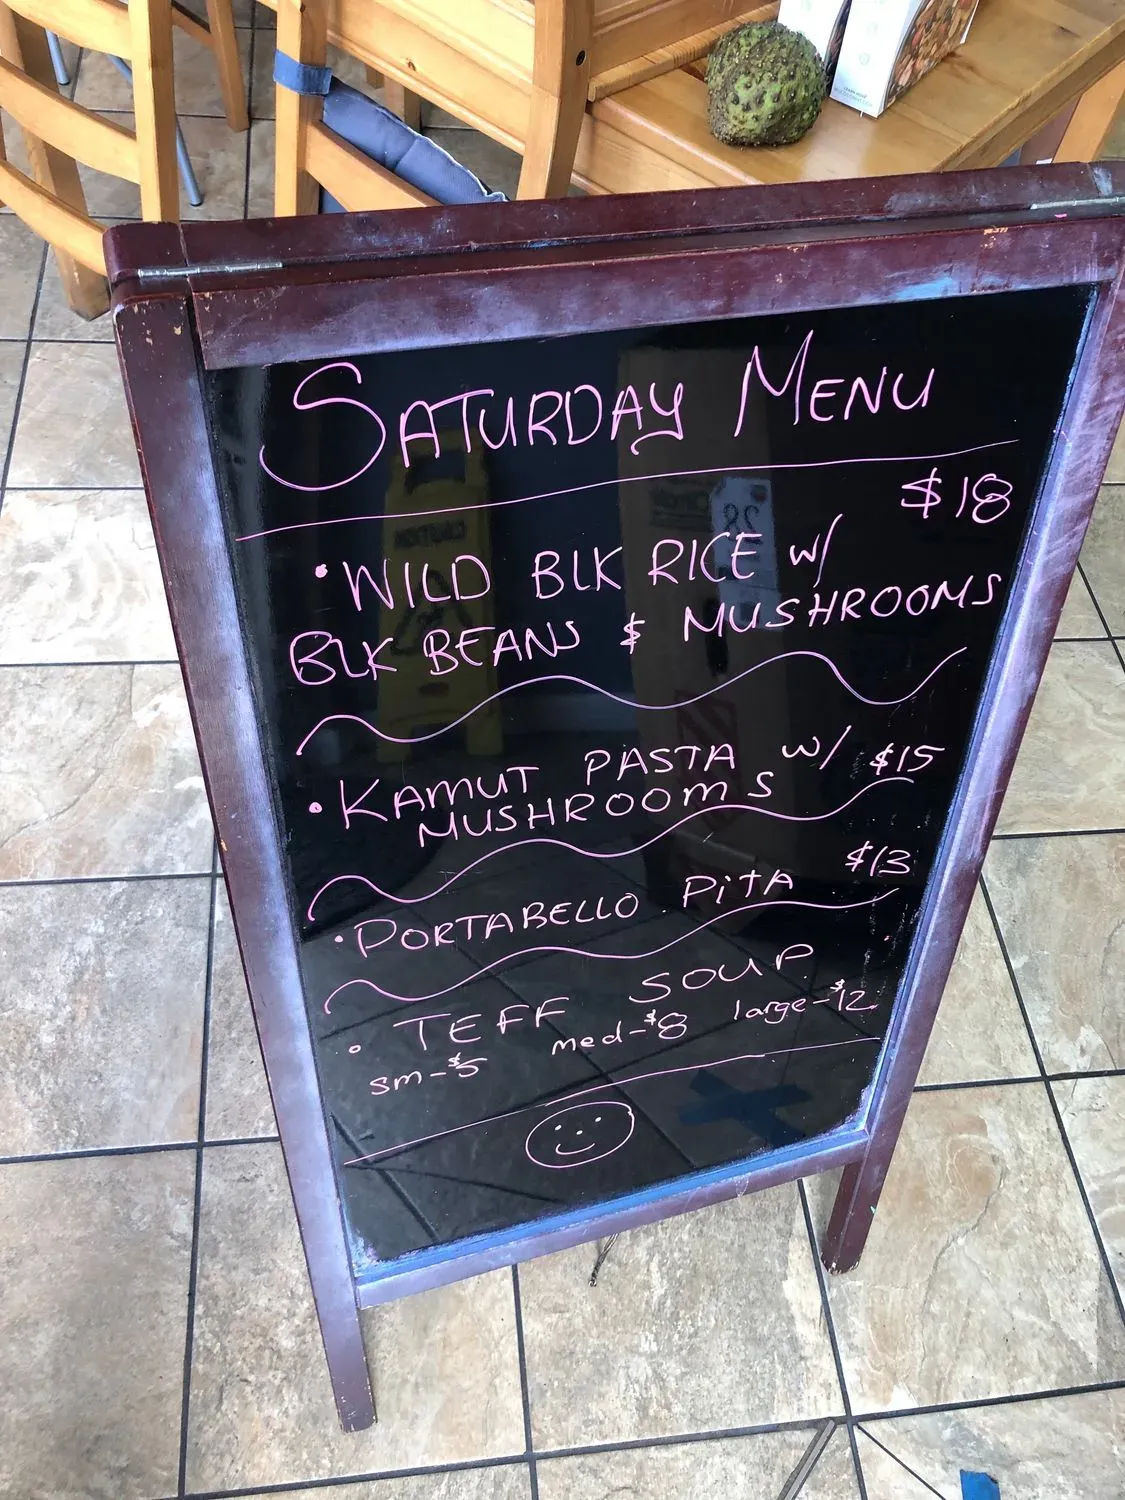 SATURDAY MENU
$18
• WILD BLK RICE w/
BLK BEANS & MUSHROOMS
• KAMUT PASTA w/ $15
MUSHROOMS
• PORTABELLO PiTA $13
• TEFF SOUP
sm-$5 med-$8 large-$12
CAUTION
28